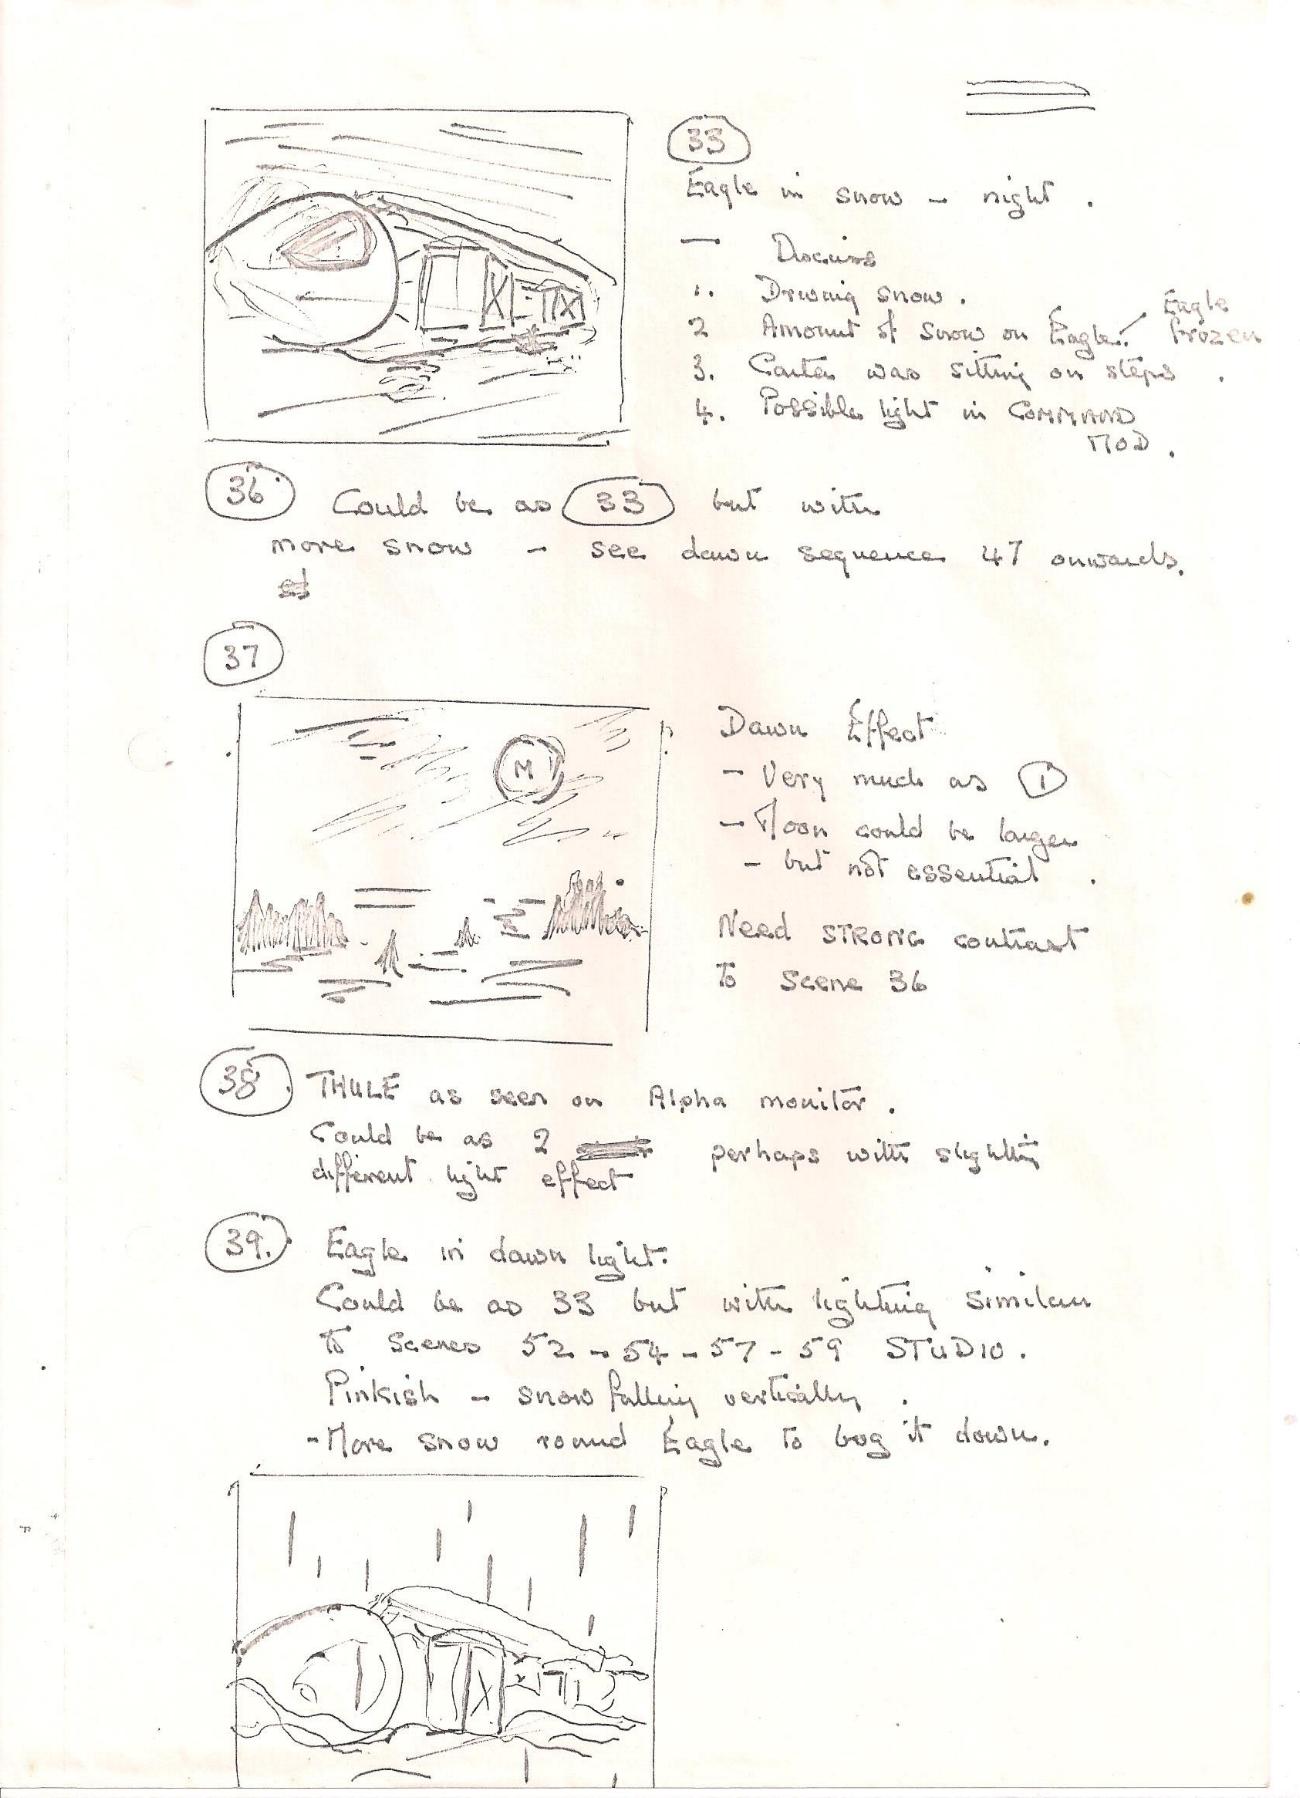 33
Eagle in snow - night .
- Discuss
1. Driving snow .
2 Amount of snow on Eagle. / Eagle frozen
3. Carter was sitting on steps .
4. Possible light in COMMAND
MOD .
36 Could be as 33 but with
more snow - see dawn sequence 47 onwards.
37
M
Dawn Effect
- Very much as 1
- Moon could be larger
- but not essential .
Need STRONG contrast
to scene 36
38. THULE as seen on Alpha monitor .
Could be as 2 perhaps with slightly
different light effect
39. Eagle in dawn light.
Could be as 33 but with lighting similar
to scenes 52 - 54 - 57 - 59 STUDIO .
Pinkish - snow falling vertically .
- More snow round Eagle to bog it down.